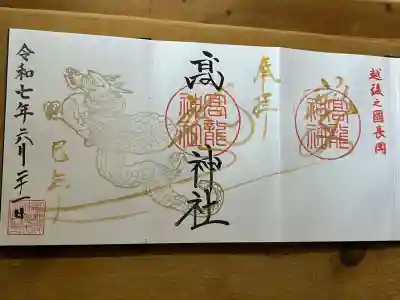 越後之國長岡
奉拝
髙龍神社
髙龍神社
髙 神社
巳之年
令和七年六月二十一日